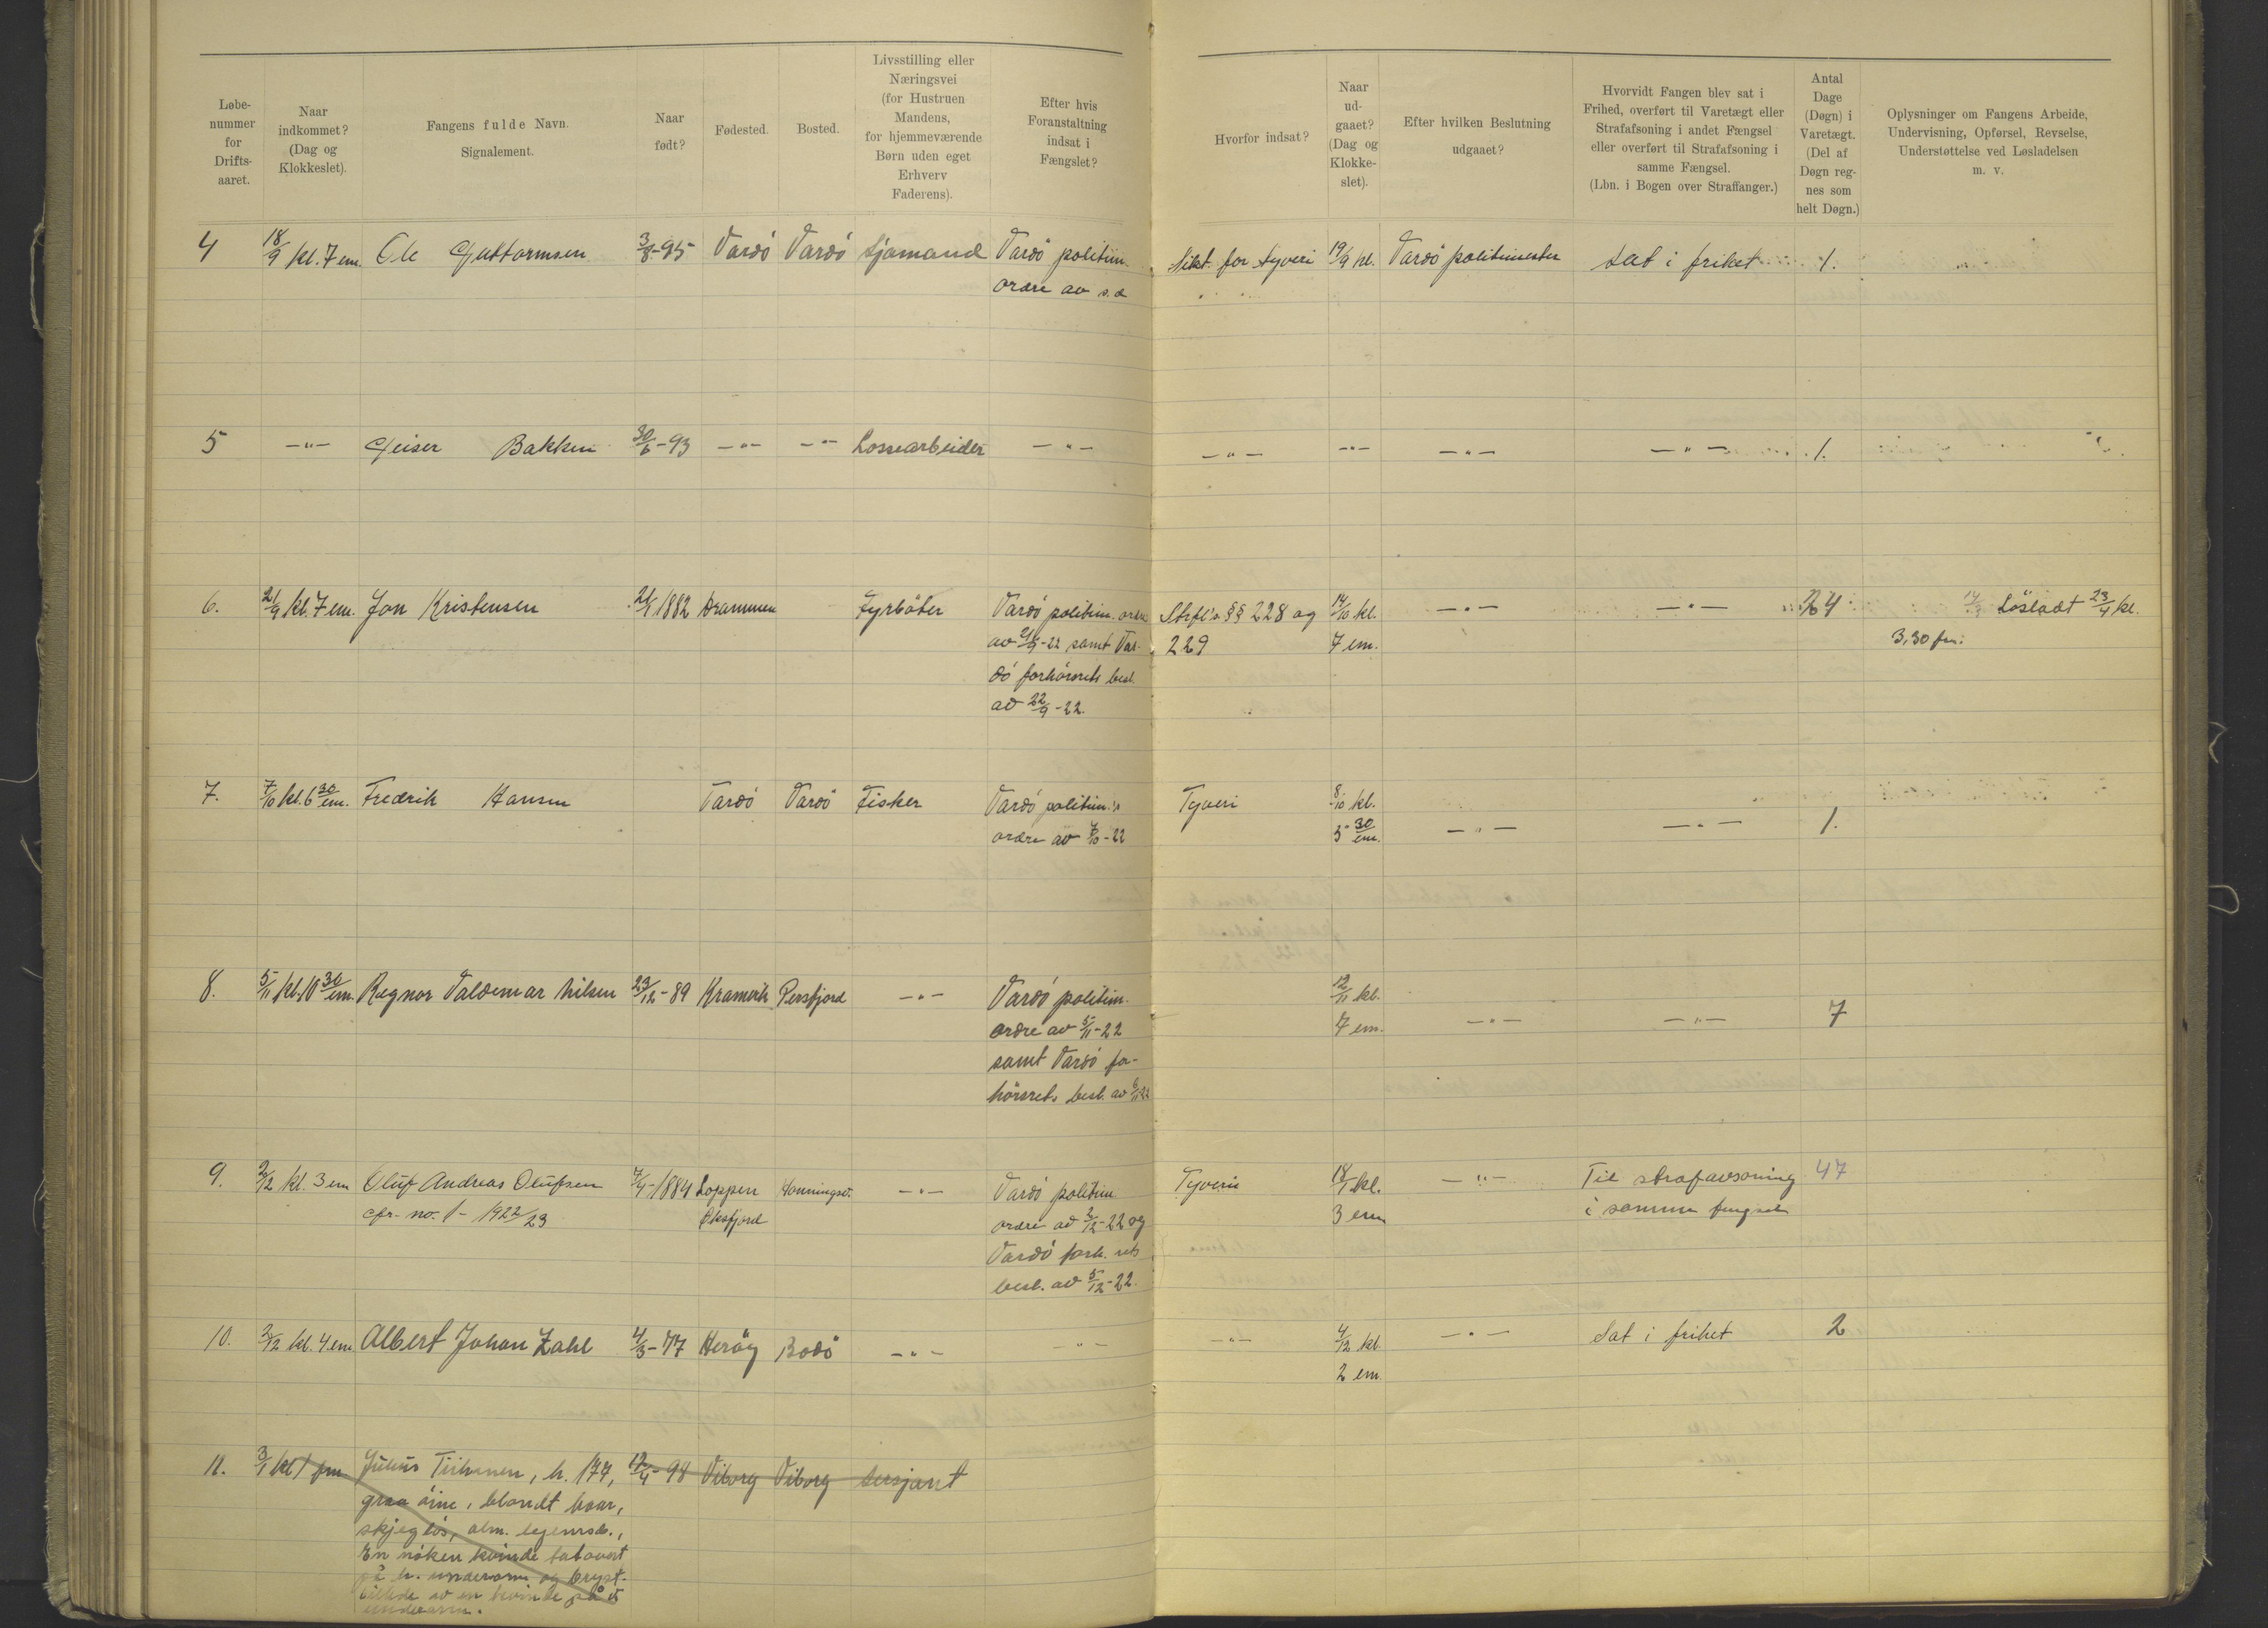 Løbe-
nummer
for
Drifts-
aaret.
Naar
indkommet?
(Dag og
Klokkeslet).
Fangens fulde Navn.
Signalement.
Naar
født?
Fødested.
Bosted.
Livsstilling eller
Næringsvei
(for Hustruen
Mandens,
for hjemmeværende
Børn uden eget
Erhverv
Faderens).
Efter hvis
Foranstaltning
indsat i
Fængslet?
Hvorfor indsat?
Naar
ud-
gaaet?
(Dag og
Klokke-
slet).
Efter hvilken Beslutning
udgaaet?
Hvorvidt Fangen blev sat i
Frihed, overført til Varetægt eller
Strafafsoning i andet Fængsel
eller overført til Strafafsoning i
samme Fængsel.
(Lbn. i Bogen over Straffanger.)
Antal
Dage
(Døgn) i
Varetægt.
(Del af
Døgn reg-
nes som
helt Døgn.)
Oplysninger om Fangens Arbeide,
Undervisning, Opførsel, Revselse,
Understøttelse ved Løsladelsen
m. v.
4 18/9 kl. 7 em. Ole Guttormsen 3/8-95 Vardö Vardö sjömand Vardö politim. Sikt. for tyveri 19/9 kl. Vardö politimester sat i frihet 1.
ordre av s.d.
5 -"- Geiser Bakken 30/6-93 -"- -"- Lossearbeider -"- -"- -"- -"- -"- 1.
6. 21/9 kl. 7 em. Jon Kristensen 21/1 1882 Drammen Fyrböter Vardö politim. ordre Strfl's §§ 228 og 14/10 kl. -"- -"- 24 Löslatt 23/4 kl.
av 21/9-22 samt Var- 229 7 em. 3,30 fm.
dö forhörsrets besl.
av 22/9-22.
7. 7/10 kl. 6 30/em. Fredrik Hansen Vardö Vardö Fisker Vardö politim.'s Tyveri 8/10 kl.
ordre av 7/10-22 5 30/em. -"- -"- 1.
8. 5/11 kl. 10 30/em. Ragnor Valdemar Nilsen 23/12-89 Kramvik Persfjord -"- Vardö politim. 12/11 kl.
ordre av 5/11-22 7 em. -"- -"- 7
samt Vardö for-
hörsrets besl. av 6/11-22
9. 2/12 kl. 3 em Oluf Andreas Olufsen 7/4-1884 Loppen Honningsv. -"- Vardö politim Tyveri 18/1 kl. -"- Til strafavsoning 47
cfr. no. 1 - 1922/23 Öksfjord ordre av 2/12-22 og 3 em i samme fengsel
Vardö forh. rets
besl. av 5/12-22.
10. 2/12 kl. 4 em Albert Johan Zahl 4/3-77 Heröy Bodö -"- -"- -"- 4/12 kl. -"- Sat i frihet 2
2 em.
11. 3/1 kl 1 fm Julius Tiihonen, h. 174, 12/4-98 Viborg Viborg Sersjant
graa öine, blondt haar,
skjeglös, alm. legemsb.,
En nöken kvinde tatovert
på h. underarm og bryst-
billede av en kvinde på v
underarm.